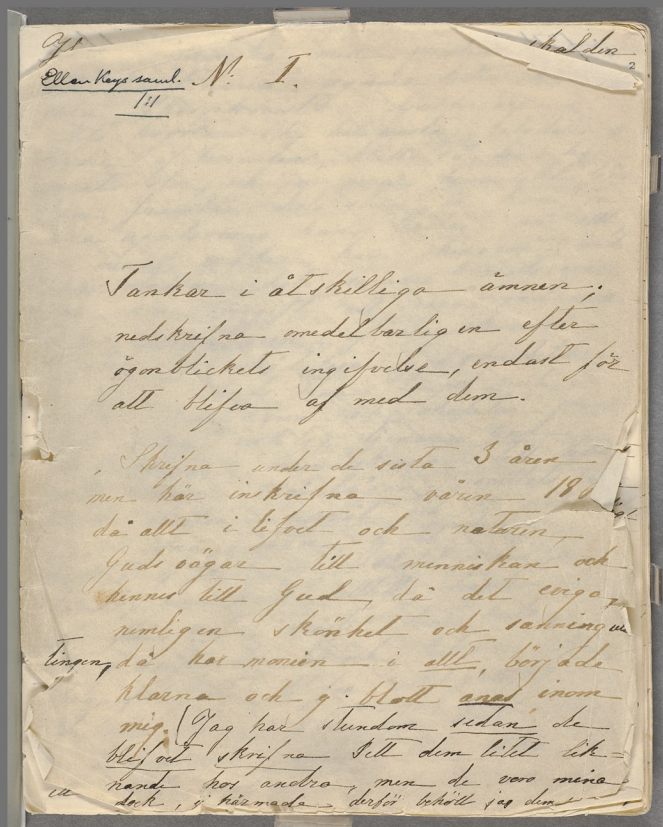 skalden
2
Ellen Keys saml.
N: I.
1:1
Tankar i åtskilliga ämnen;
nedskrifna omedelbarligen efter
ögonblickets ingifvelse, endast för
att blifva af med dem.
Skrifna under de sista 3 åren
men här inskrifna våren 18
då allt i lifvet och naturen
Guds vägar till menniskan och
hennes till Gud, då det eviga
nemligen skönhet och sanning
tingen, då harmonien i allt, började
klarna och ej blott anas inom
mig. (Jag har stundom sedan de
blifvet skrifna sett dem litet lik=
nande hos andra, men de voro mina
dock, ej härmade derför behöll jag dem